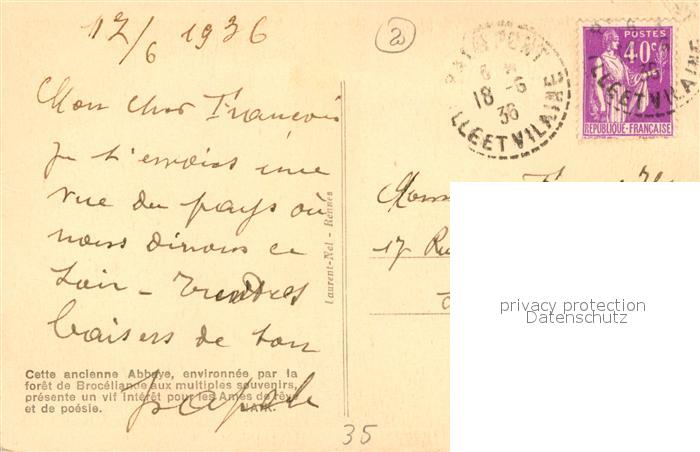 17/6 1936
2
PAIMPONT
18 -6
36
ILLE ET VILAINE
POSTES
40c
REPUBLIQUE-FRANCAISE
36
ILLE ET VILAINE
Mon cher François
Je t'envoies une
vue du pays où
nous dinons ce
soir - Tendres
baisers de ton
Laurent-Nel - Rennes
17 Ru
privacy protection
Datenschutz
Cette ancienne Abbaye, environnée par la
forêt de Brocéliande aux multiples souvenirs,
présente un vif intérêt pour les Ames de rêve
et de poésie.
35